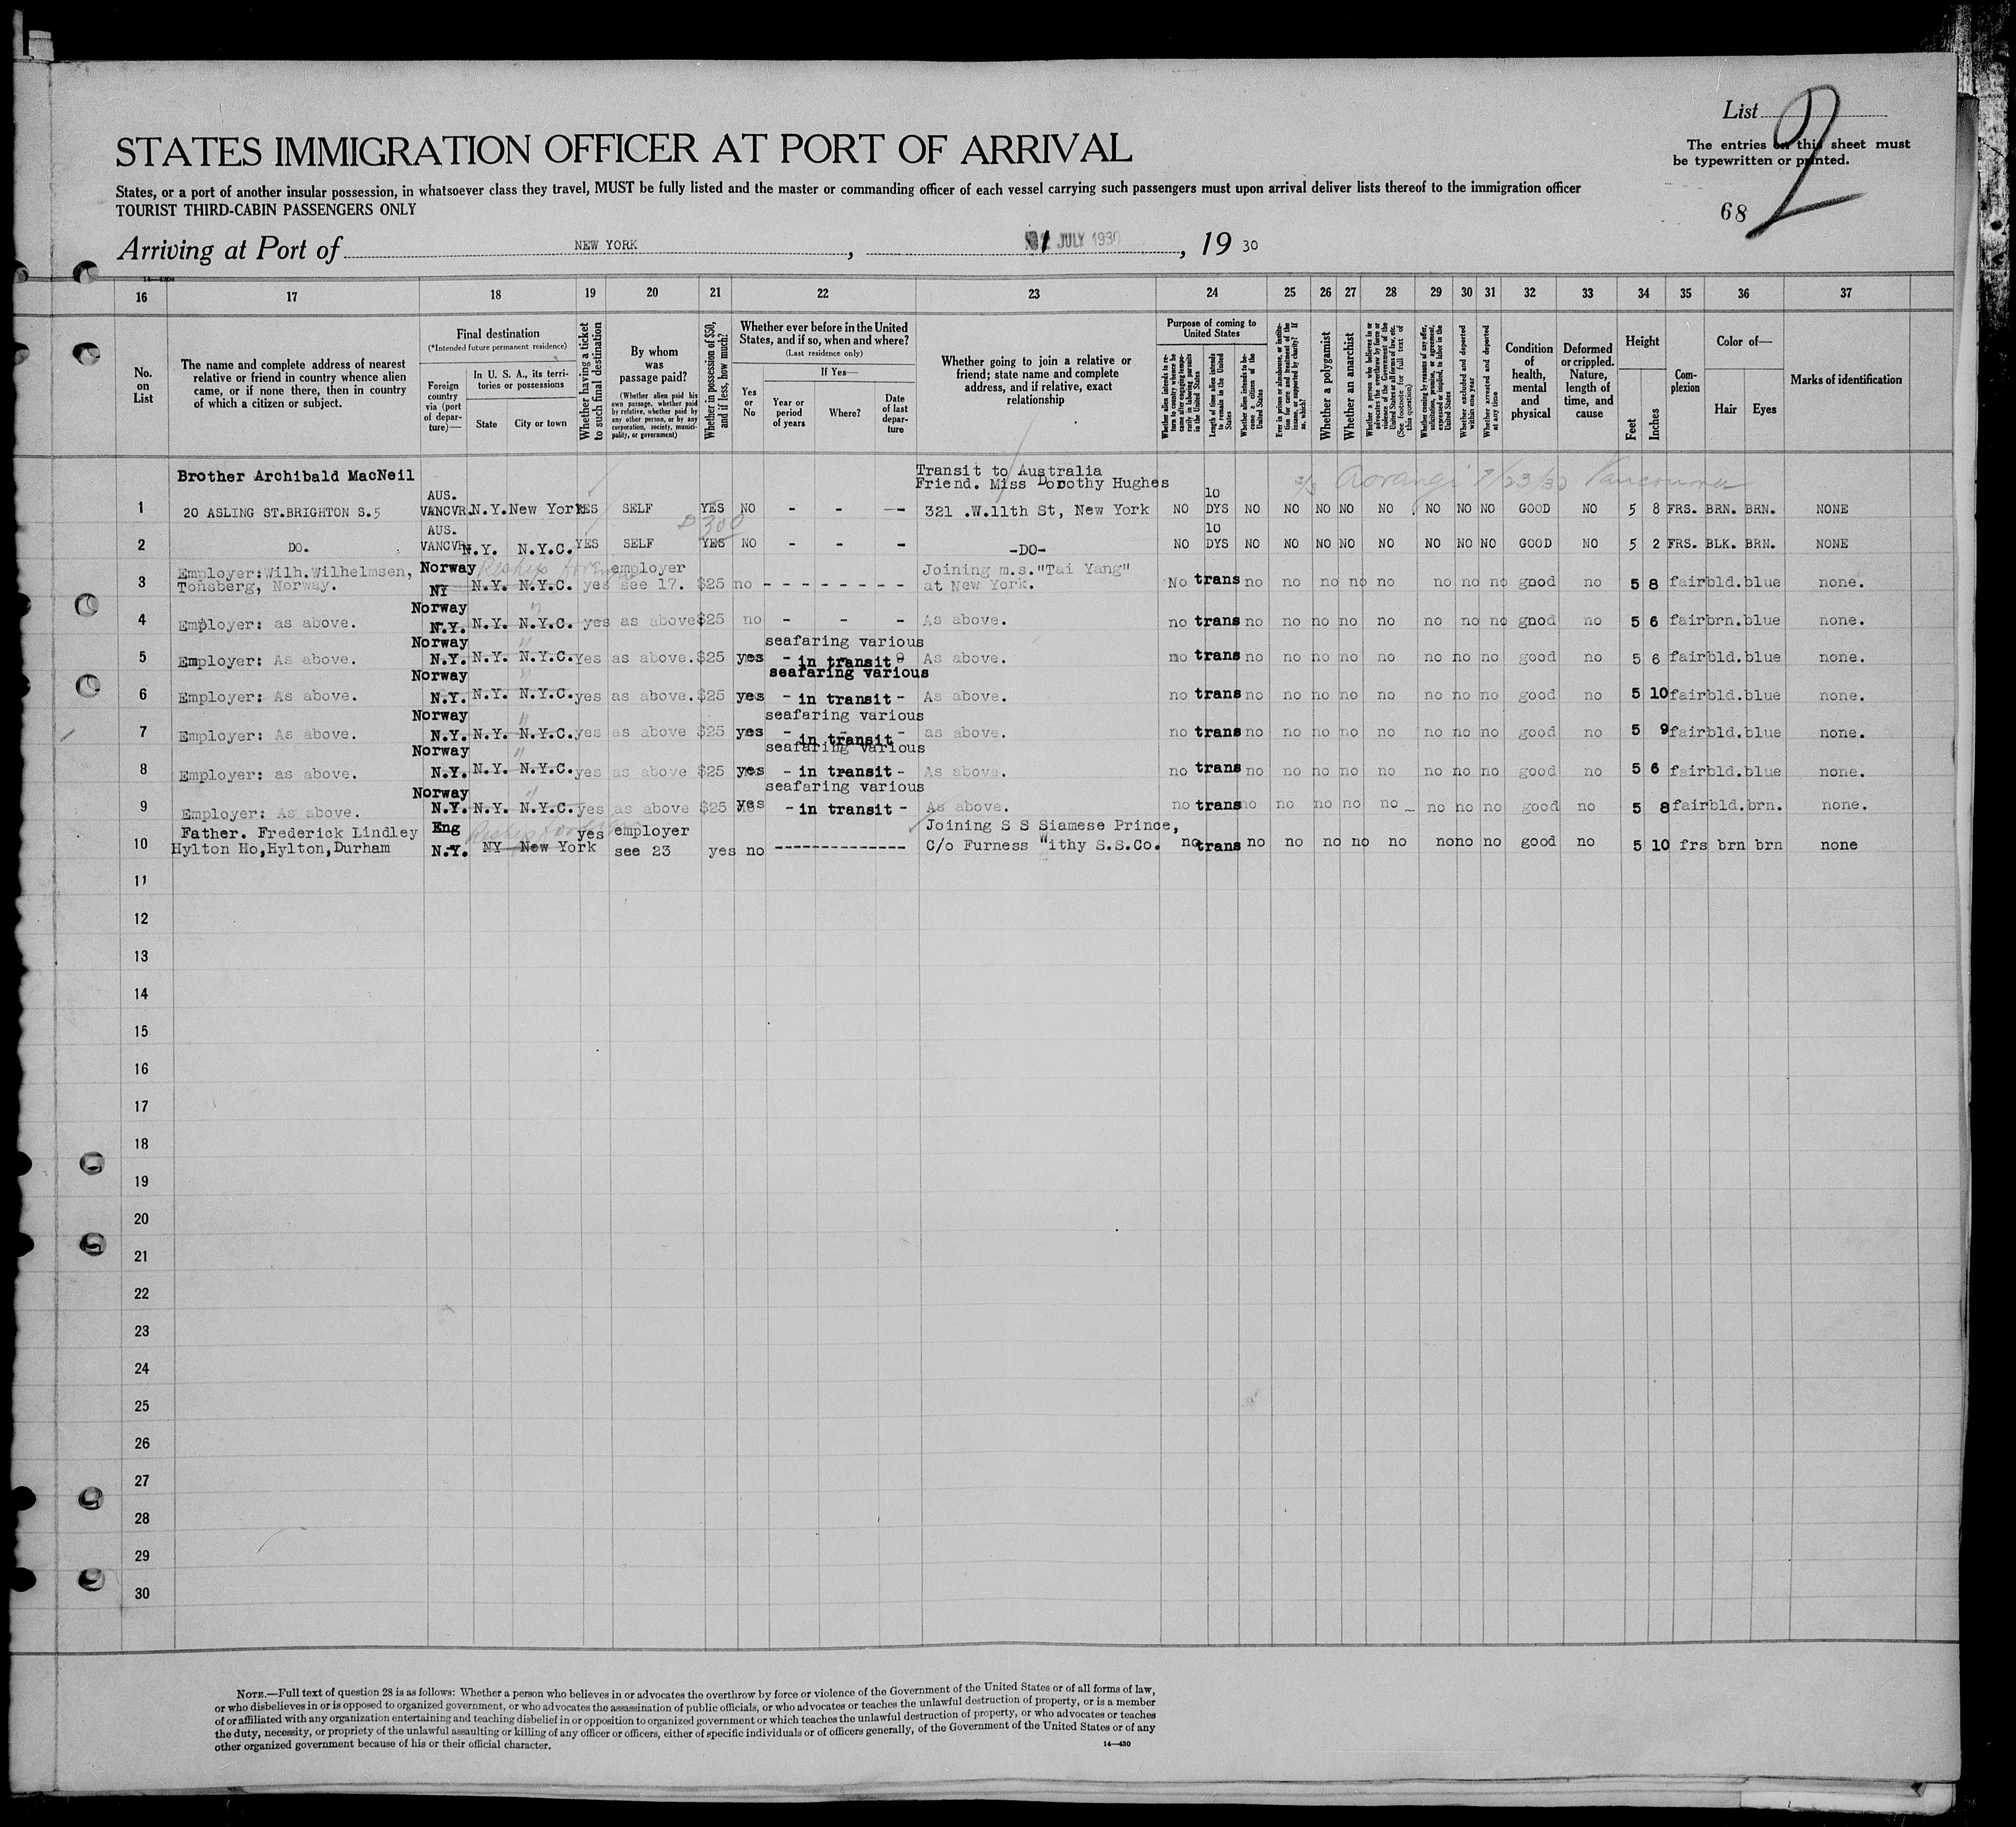 List 2
The entries on this sheet must
be typewritten or printed.
68
STATES IMMIGRATION OFFICER AT PORT OF ARRIVAL
States, or a port of another insular possession, in whatsoever class they travel, MUST be fully listed and the master or commanding officer of each vessel carrying such passengers must upon arrival deliver lists thereof to the immigration officer
TOURIST THIRD-CABIN PASSENGERS ONLY
Arriving at Port of NEW YORK, 1 JULY 1930, 19 30
16 17 18 19 20 21 22 23 24 25 26 27 28 29 30 31 32 33 34 35 36 37
No. on List
The name and complete address of nearest
relative or friend in country whence alien
came, or if none there, then in country
of which a citizen or subject.
Final destination
(*Intended future permanent residence)
Foreign country via (port of departure)—
In U. S. A., its territories or possessions
State
City or town
Whether having a ticket to such final destination
By whom was passage paid?
(Whether alien paid his own passage, whether paid by relative, whether paid by any other person, or by any corporation, society, municipality, or government)
Whether in possession of $50, and if less, how much?
Whether ever before in the United
States, and if so, when and where?
(Last residence only)
Yes or No
If Yes—
Year or period of years
Where?
Date of last departure
Whether going to join a relative or
friend; state name and complete
address, and if relative, exact
relationship
Purpose of coming to United States
Whether alien intends to return to country whence he came after engaging temporarily in laboring pursuits in the United States
Length of time alien intends to remain in the United States
Whether alien intends to become a citizen of the United States
Ever in prison or almshouse, or institution for care and treatment of the insane, or supported by charity? If so, which?
Whether a polygamist
Whether an anarchist
Whether a person who believes in or advocates the overthrow by force or violence of the Government of the United States or all forms of law, etc. (See footnote for full text of this question)
Whether coming by reason of any offer, solicitation, promise, or agreement, expressed or implied, to labor in the United States
Whether excluded and deported within one year
Whether arrested and deported at any time
Condition of health, mental and physical
Deformed or crippled. Nature, length of time, and cause
Height
Feet
Inches
Complexion
Color of—
Hair
Eyes
Marks of identification
Brother Archibald MacNeil Transit to Australia
AUS. Friend. Miss Dorothy Hughes 10 Aorangi 7/23/30 Vancouver
1 20 ASLING ST.BRIGHTON S.5 VANCVR. N.Y. New York YES SELF YES NO - - - 321 .W.11th St, New York NO DYS NO NO NO NO NO NO NO NO GOOD NO 5 8 FRS. BRN. BRN. NONE
AUS. $300 10
2 DO. VANCVR. N.Y. N.Y.C. YES SELF YES NO - - - -DO- NO DYS NO NO NO NO NO NO NO NO GOOD NO 5 2 FRS. BLK. BRN. NONE
Employer:Wilh.Wilhelmsen, Norway employer Joining m.s."Tai Yang"
3 Tonsberg, Norway. NY N.Y. N.Y.C. yes see 17. $25 no - - - - - - - - at New York. No trans no no no no no no no no good no 5 8 fair bld. blue none.
Norway
4 Employer: as above. N.Y. N.Y. N.Y.C. yes as above $25 no - - - As above. no trans no no no no no no no no good no 5 6 fair brn. blue none.
Norway " seafaring various
5 Employer: As above. N.Y. N.Y. N.Y.C. Yes as above. $25 yes - in transit As above. no trans no no no no no no no no good no 5 6 fair bld. blue none.
Norway " seafaring various
6 Employer: As above. N.Y. N.Y. N.Y.C. yes as above. $25 yes - in transit - As above. no trans no no no no no no no no good no 5 10 fair bld. blue none.
Norway " seafaring various
7 Employer: As above. N.Y. N.Y. N.Y.C. yes as above $25 yes - in transit - as above. no trans no no no no no no no no good no 5 9 fair bld. blue none.
Norway " seafaring various
8 Employer: as above. N.Y. N.Y. N.Y.C. yes as above $25 yes - in transit - As above. no trans no no no no no no no no good no 5 6 fair bld. blue none.
Norway " seafaring various
9 Employer: As above. N.Y. N.Y. N.Y.C. yes as above $25 yes - in transit - As above. no trans no no no no no no no no good no 5 8 fair bld. brn. none.
Father. Frederick Lindley Eng yes employer Joining S S Siamese Prince,
10 Hylton Ho,Hylton,Durham N.Y. NY New York see 23 yes no -------------- C/o Furness Withy S.S.Co. no trans no no no no no no no no good no 5 10 frs brn brn none
11
12
13
14
15
16
17
18
19
20
21
22
23
24
25
26
27
28
29
30
NOTE.—Full text of question 28 is as follows: Whether a person who believes in or advocates the overthrow by force or violence of the Government of the United States or of all forms of law,
or who disbelieves in or is opposed to organized government, or who advocates the assassination of public officials, or who advocates or teaches the unlawful destruction of property, or is a member
of or affiliated with any organization entertaining and teaching disbelief in or opposition to organized government or which teaches the unlawful destruction of property, or who advocates or teaches
the duty, necessity, or propriety of the unlawful assaulting or killing of any officer or officers, either of specific individuals or of officers generally, of the Government of the United States or of any
other organized government because of his or their official character.
14—430